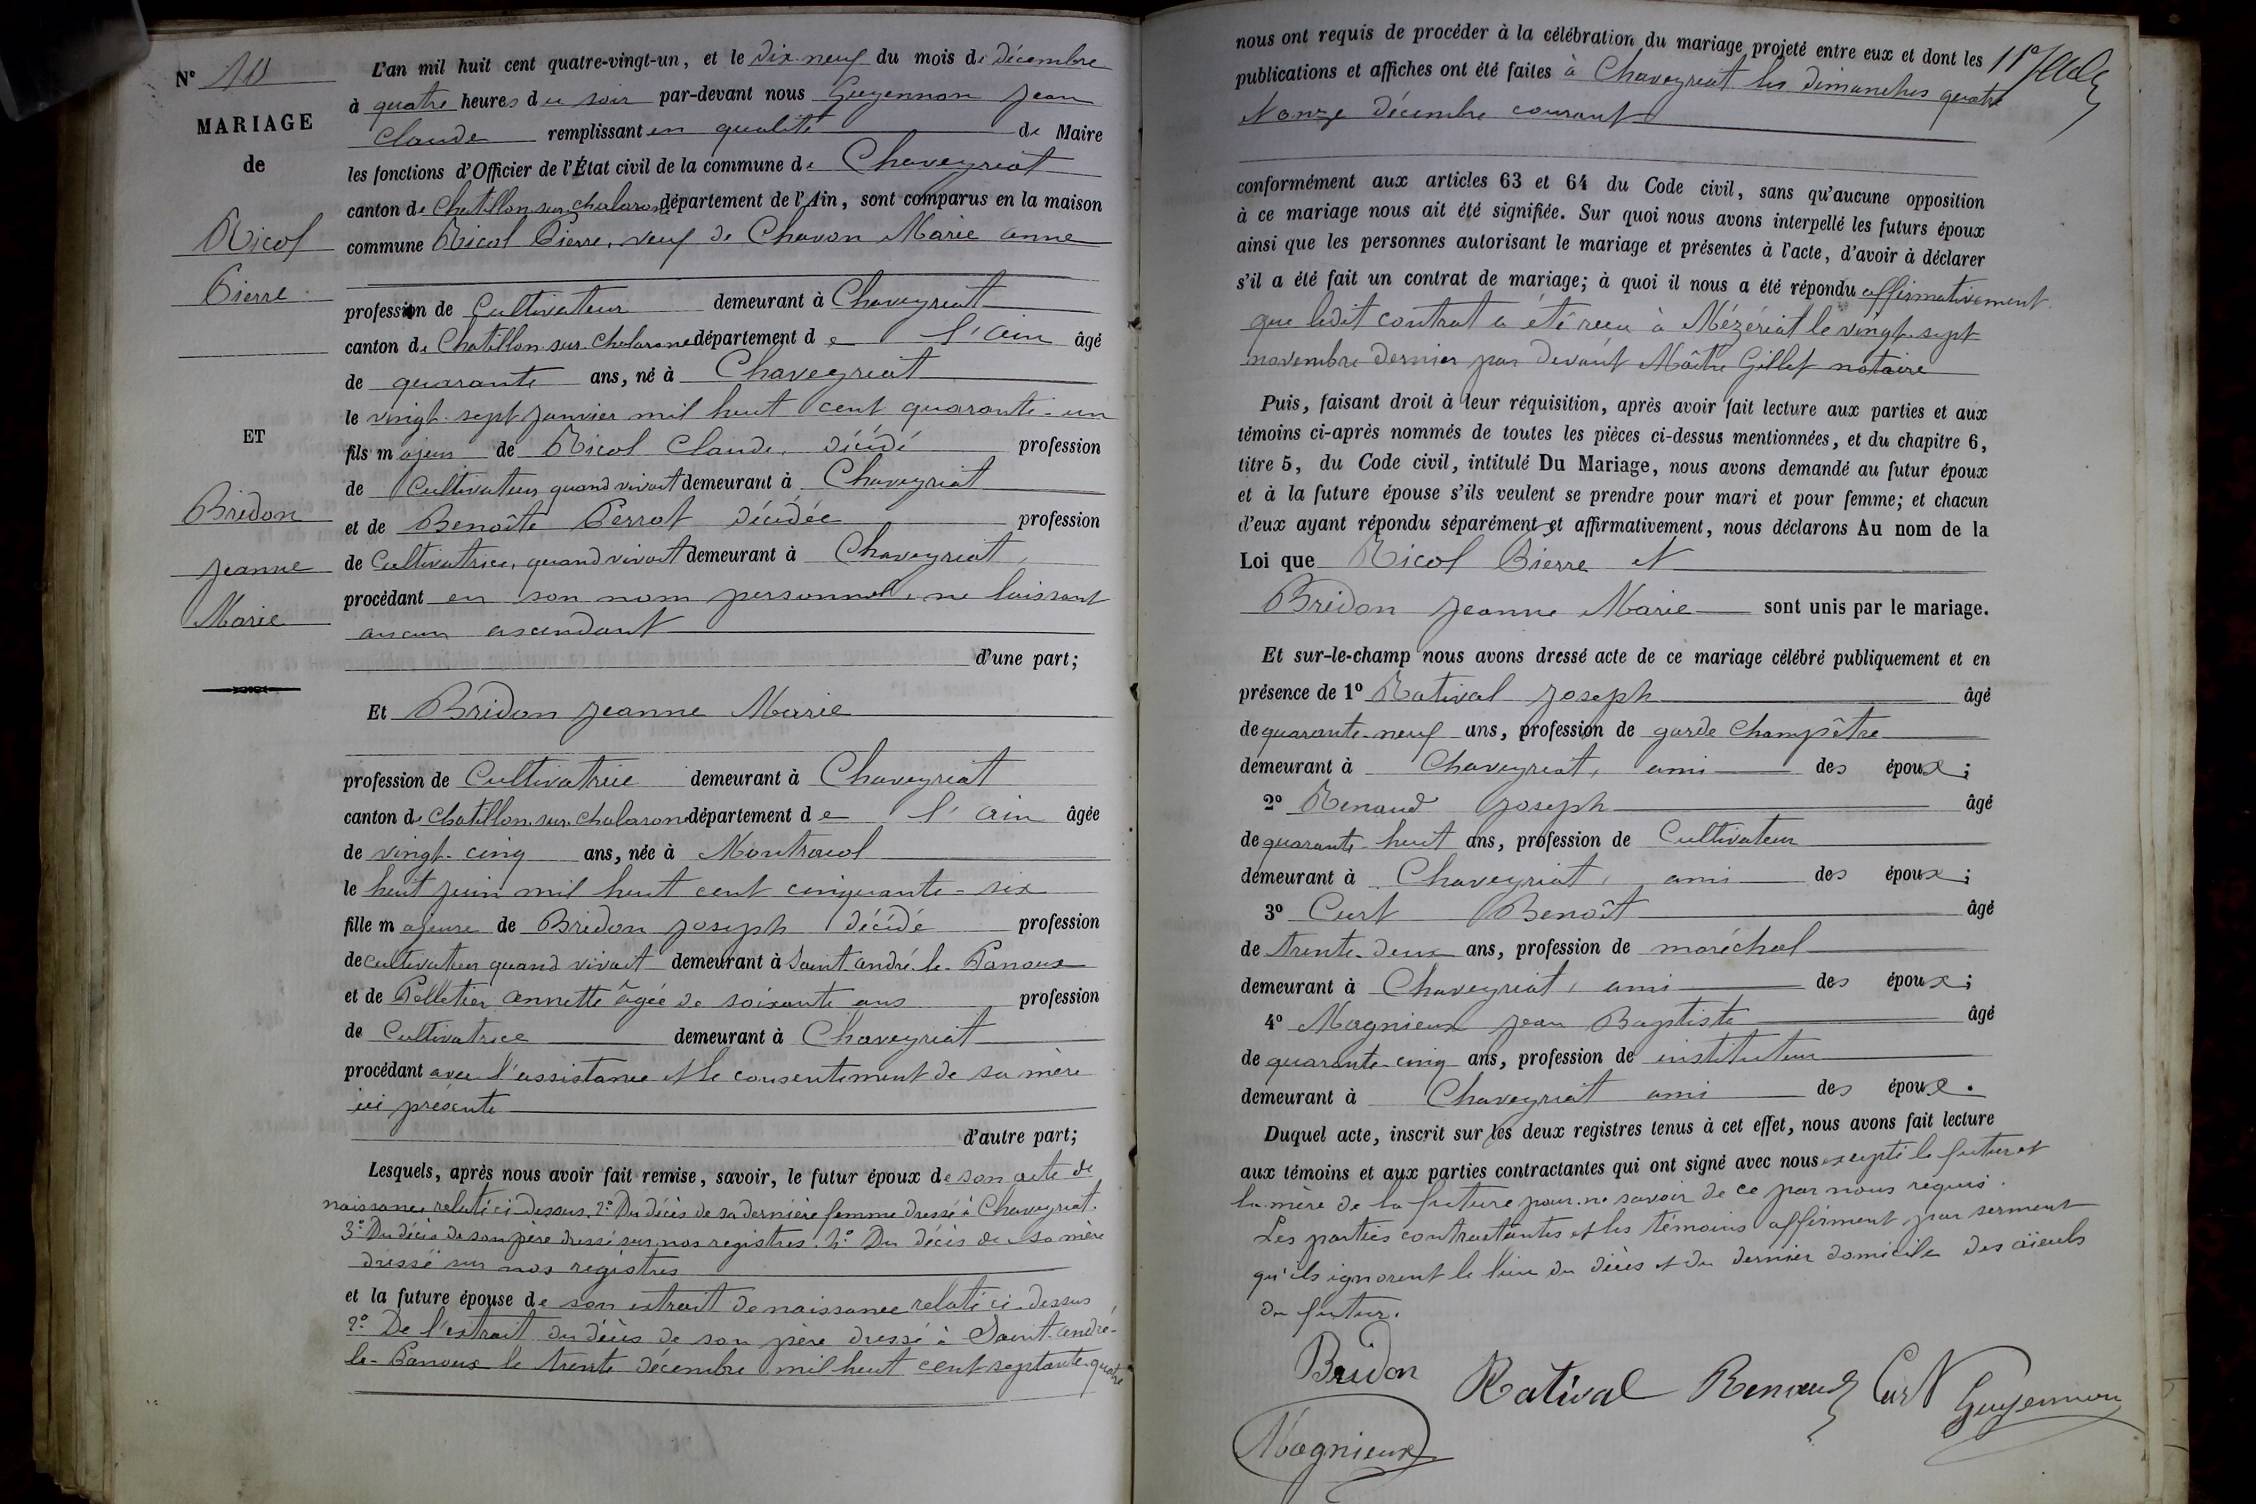 N° 10
MARIAGE
de
Nicol
Pierre
ET
Bridon
Jeanne
Marie
L'an mil huit cent quatre-vingt-un, et le dix neuf du mois de décembre
à quatre heures du soir par-devant nous Guyennon Jean
Claude remplissant en qualité de Maire
les fonctions d'Officier de l'État civil de la commune de Chaveyriat
canton de Chatillon sur Chalaronne département de l'Ain, sont comparus en la maison
commune Nicol Pierre, veuf de Chavon Marie anne
profession de Cultivateur demeurant à Chaveyriat
canton de Chatillon-sur-Chalaronne département de l'Ain âgé
de quarante ans, né à Chaveyriat
le vingt-sept janvier mil huit cent quarante-un
fils majeur de Nicol Claude, décédé profession
de Cultivateur quand vivait demeurant à Chaveyriat
et de Benoîte Perrot décédée profession
de Cultivatrice, quand vivait demeurant à Chaveyriat,
procédant en son nom personnel, ne laissant
aucun ascendant
d'une part;
Et Bridon Jeanne Marie
profession de Cultivatrice demeurant à Chaveyriat
canton de Chatillon-sur-Chalaronne département de l'Ain âgée
de vingt-cinq ans, née à Montracol
le huit juin mil huit cent cinquante-six
fille majeure de Bridon Joseph décédé profession
de cultivateur quand vivait demeurant à Saint-andré-le-Panoux
et de Pelletier Annette âgée de soixante ans profession
de Cultivatrice demeurant à Chaveyriat
procédant avec l'assistance et le consentement de sa mère
ici présente
d'autre part;
Lesquels, après nous avoir fait remise, savoir, le futur époux de son acte de
naissance relaté ci-dessus. 2° Du décès de sa dernière femme dressé à Chaveyriat.
3° Du décès de son père dressé sur nos registres. 4° Du décès de sa mère
dressé sur nos registres
et la future épouse de son extrait de naissance relaté ci-dessus
2° De l'extrait du décès de son père dressé à Saint-andré-
le-Panoux le trente décembre mil huit cent septante-quatre
nous ont requis de procéder à la célébration du mariage projeté entre eux et dont les
publications et affiches ont été faites à Chaveyriat les dimanches quatre
et onze décembre courant
conformément aux articles 63 et 64 du Code civil, sans qu'aucune opposition
à ce mariage nous ait été signifiée. Sur quoi nous avons interpellé les futurs époux
ainsi que les personnes autorisant le mariage et présentes à l'acte, d'avoir à déclarer
s'il a été fait un contrat de mariage; à quoi il nous a été répondu affirmativement
que ledit contrat a été reçu à Mézériat le vingt-sept
novembre dernier par devant Maître Gillet notaire
Puis, faisant droit à leur réquisition, après avoir fait lecture aux parties et aux
témoins ci-après nommés de toutes les pièces ci-dessus mentionnées, et du chapitre 6,
titre 5, du Code civil, intitulé Du Mariage, nous avons demandé au futur époux
et à la future épouse s'ils veulent se prendre pour mari et pour femme; et chacun
d'eux ayant répondu séparément et affirmativement, nous déclarons Au nom de la
Loi que Nicol Pierre et
Bridon Jeanne Marie sont unis par le mariage.
Et sur-le-champ nous avons dressé acte de ce mariage célébré publiquement et en
présence de 1° Ratival Joseph âgé
de quarante-neuf ans, profession de garde Champêtre
demeurant à Chaveyriat, ami des époux;
2° Renaud Joseph âgé
de quarante-huit ans, profession de Cultivateur
demeurant à Chaveyriat, ami des époux;
3° Curt Benoît âgé
de trente-deux ans, profession de maréchal
demeurant à Chaveyriat, ami des époux;
4° Magnieux Jean Baptiste âgé
de quarante-cinq ans, profession de instituteur
demeurant à Chaveyriat ami des époux.
Duquel acte, inscrit sur les deux registres tenus à cet effet, nous avons fait lecture
aux témoins et aux parties contractantes qui ont signé avec nous excepté le futur et
la mère de la future pour ne savoir de ce par nous requis.
Les parties contractantes et les témoins affirment par serment
qu'ils ignorent le lieu du décès et du dernier domicile des aïeuls
du futur.
Bridon Ratival Renaud Curt Guyennon
Magnieux